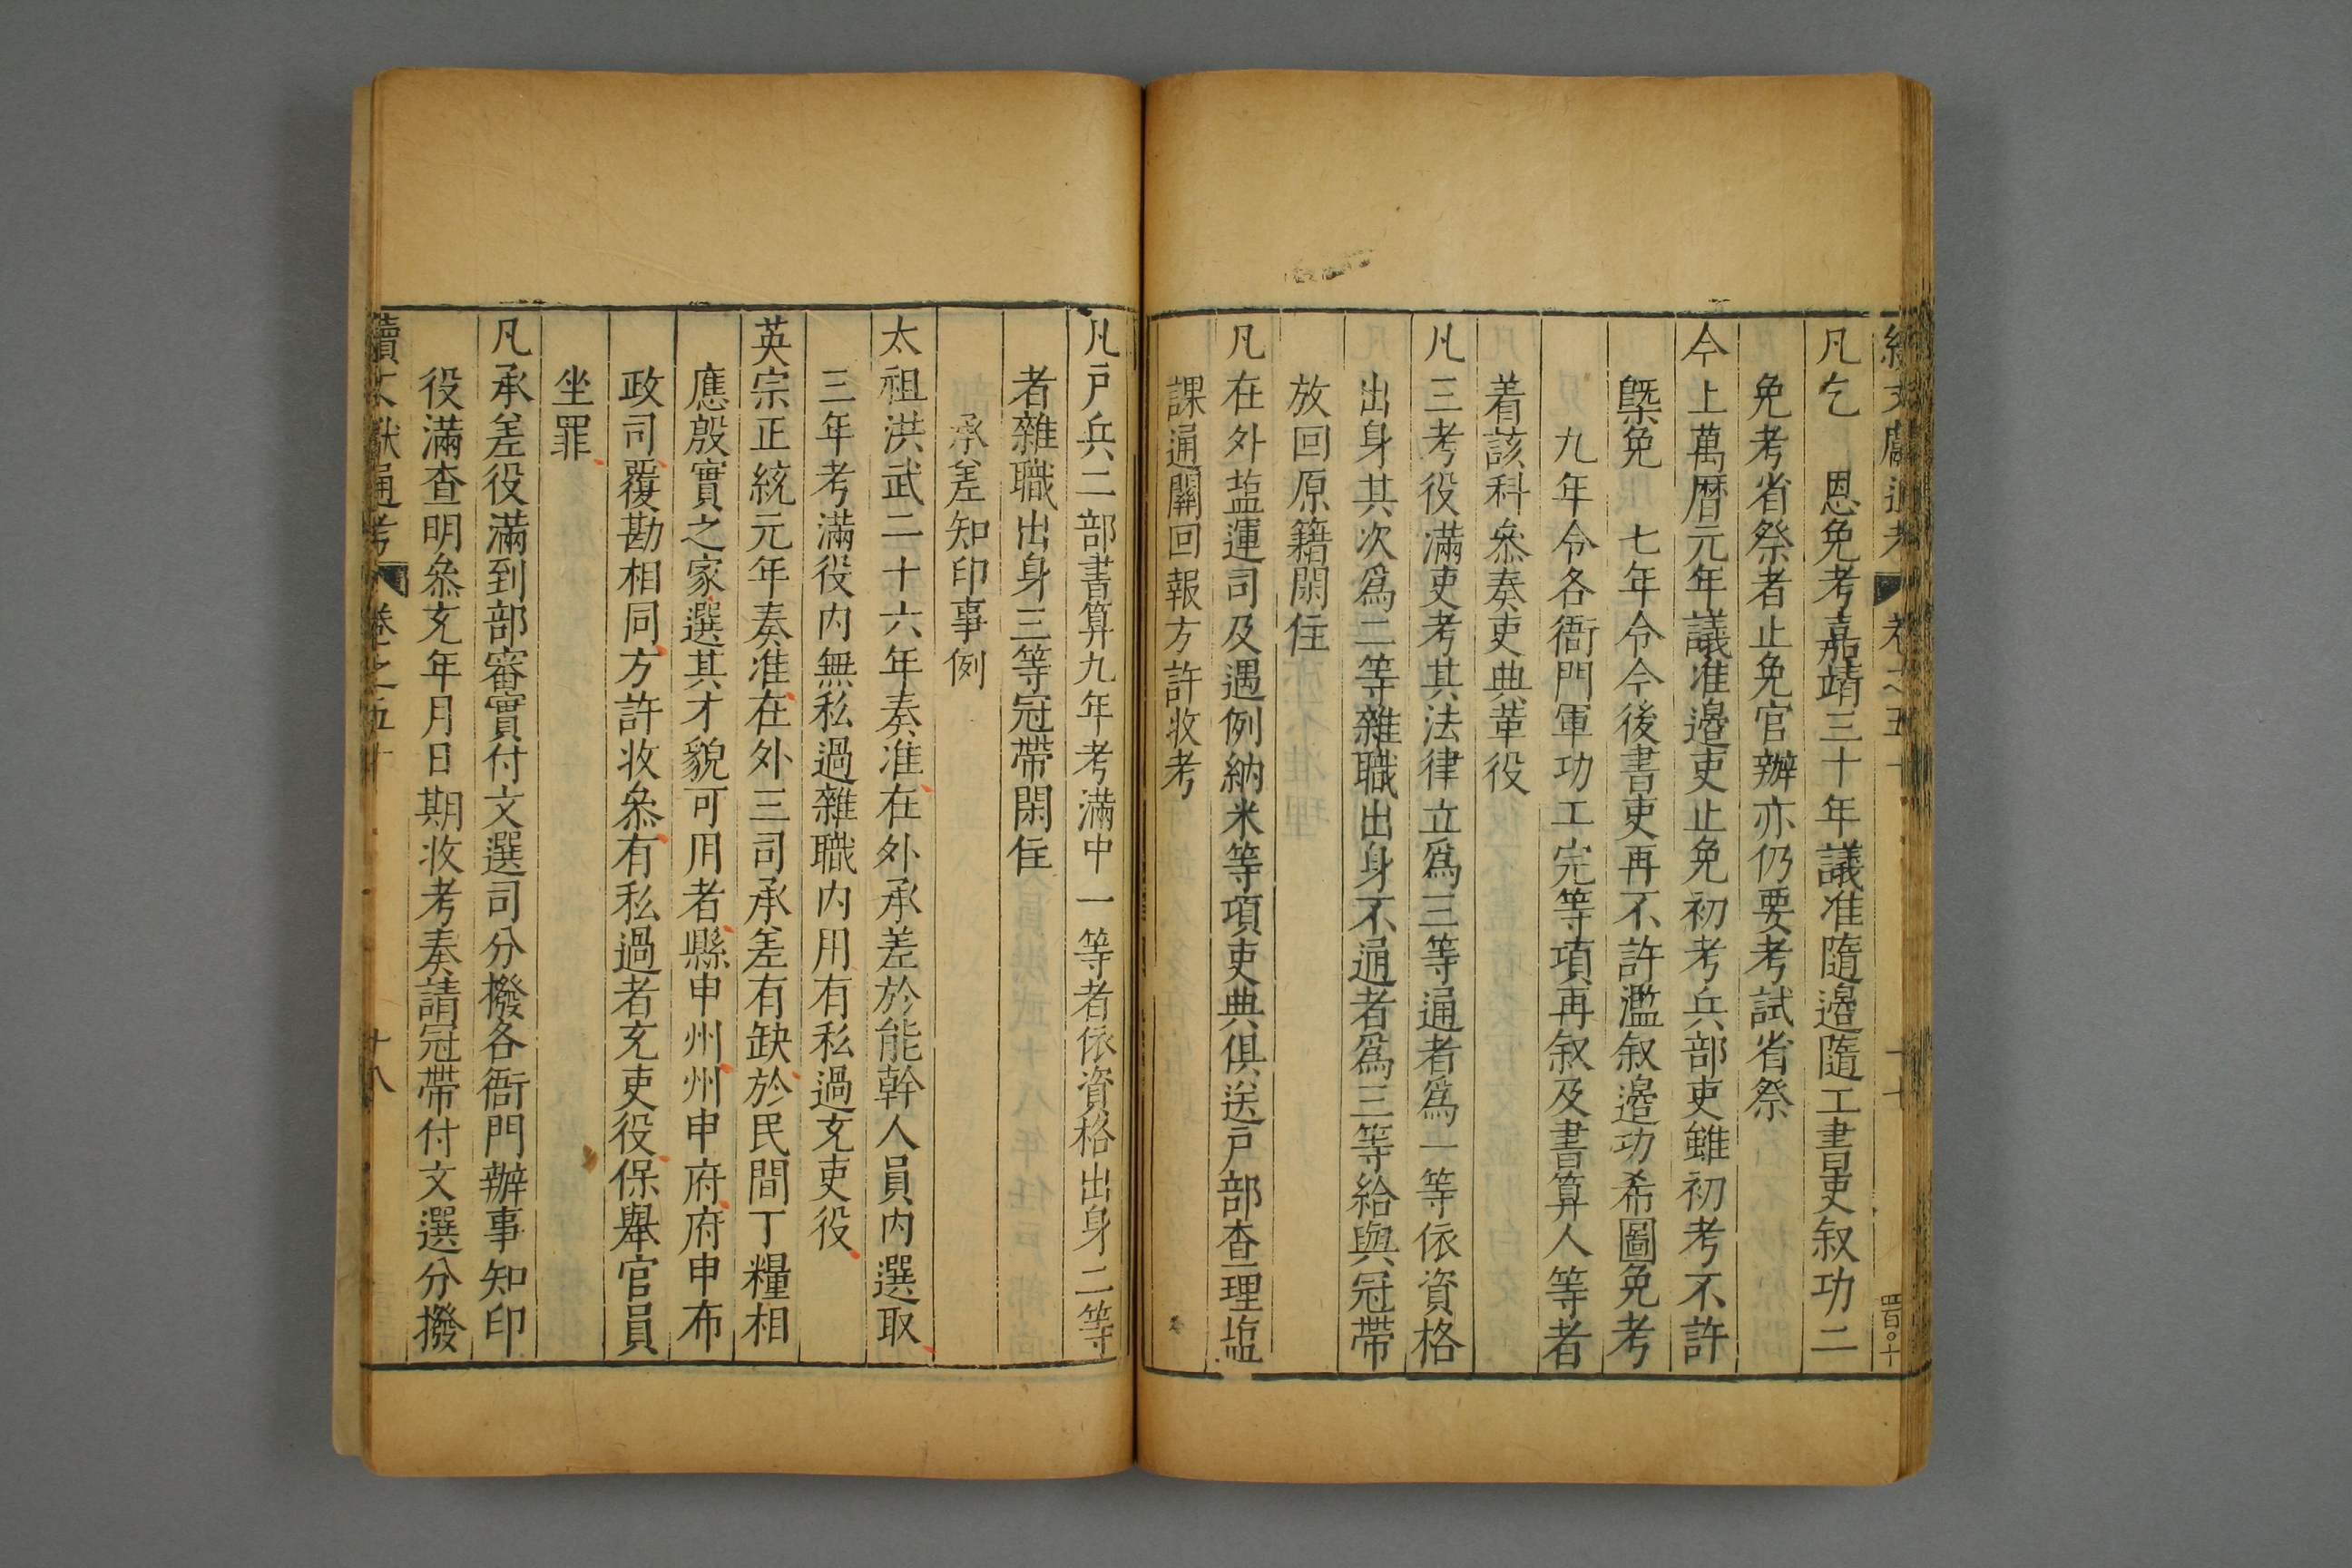 凡乞　恩免考嘉靖三十年議准隨邉隨工書吏叙功二
免考省祭者止免官辦亦仍要考試省祭
今上萬曆元年議准邉吏止免初考兵部吏雖初考不許
槩免　七年令今後書吏再不許濫叙邉功希圖免考
九年令各衙門軍功工完等項再叙及書算人等者
着該科叅奏吏典革役
凡三考役滿吏考其法律立爲三等通者爲一等依資格
出身其次爲二等雜職出身不通者爲三等給與冠帶
放回原籍閑住
凡在外塩運司及遇例納米等項吏典俱送戸部查理塩
課通關回報方許收考
凡戸兵二部書算九年考滿中一等者依資格出身二等
者雜職出身三等冠帶閑住
承差知印事例
太祖洪武二十六年奏准在外承差於能幹人員内選取
三年考滿役内無私過雜職内用有私過充吏役
英宗正統元年奏准在外三司承差有缺於民間丁糧相
應殷實之家選其才貌可用者縣申州州申府府申布
政司覆勘相同方許收叅有私過者充吏役保舉官員
坐罪
凡承差役滿到部審實付文選司分撥各衙門辦事知印
役滿查明叅充年月日期收考奏請冠帶付文選分撥
續文獻通考　卷之五十　十八